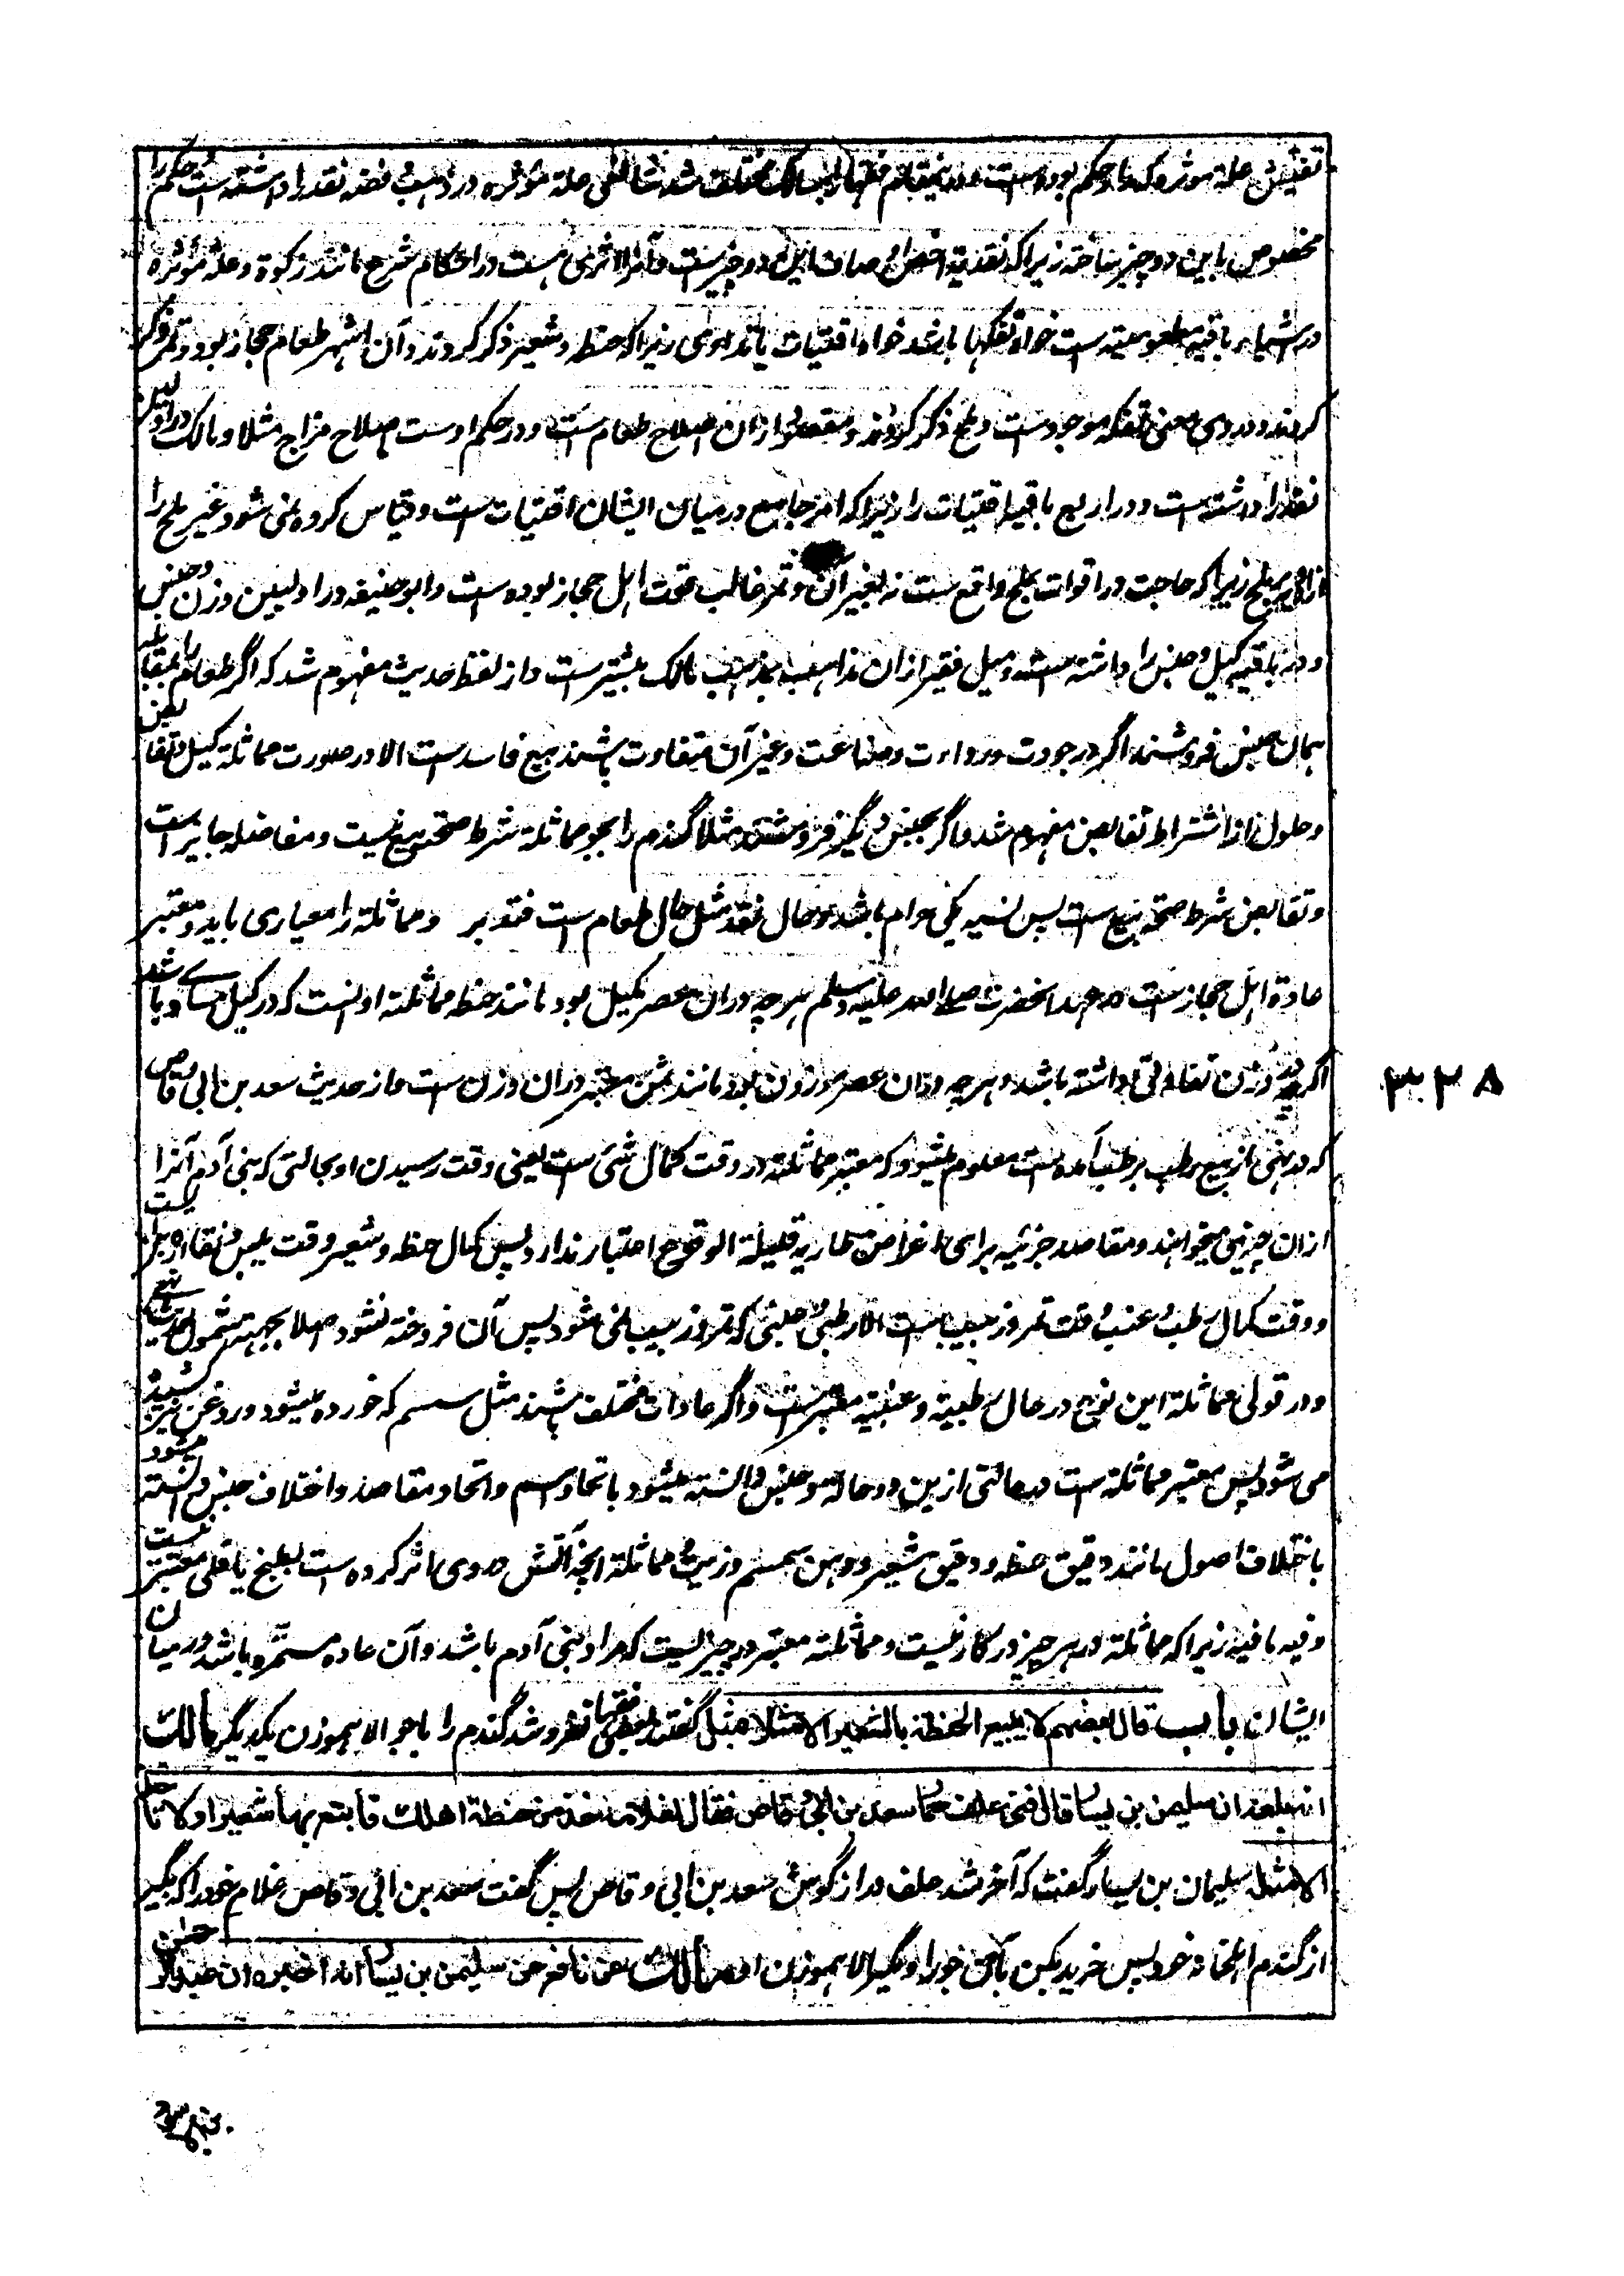 تفتیش علة موثره که مدار حکم بوده است و درینمقام فقها را مسالک مختلف شد شافعی علة مؤثره در ذهب و فضه نقد را داشته است حکم را
مخصوص باین دو چیز ساخته زیرا که نقدیة اخص اوصاف این دو چیز ست و آنرا اثری هست در احکام شرع مانند زکوة و علة مؤثره
در اشیاء باقیه مطعومیة ست خواه تفکها باشد خواه اقتیات یا تداوی زیرا که حنطه و شعیر ذکر کردند و آن اشهر طعام حجاز بود و تمر ذکر
کردند و در وی معنی تفکه موجود ست و ملح ذکر کردند و مقصود ازان اصلاح طعام ست و در حکم اوست اصلاح مزاج مثلا و مالک در اولین
نقد را داشته است و در اربع باقیه اقتیات را زیرا که امر جامع درمیان ایشان اقتیات ست و قیاس کرده نمی شود غیر ملح را
ازان بر ملح زیرا که حاجت در اقوات بملح واقع ست نه بغیر آن و تمر غالب قوت اهل حجاز بوده ست و ابو حنیفه در اولیین وزن و جنس
و در باقیه کیل و جنس را داشته است و میل فقیر ازان مذاهب بمذهب مالک بیشتر ست و از لفظ حدیث مفهوم شد که اگر طعام را بمقابله
همان جنس فروشند اگر در جودت و رداءت و صناعت و غیر آن متفاوت باشند بیع فاسد ست الا در صورت مماثلة کیل و تقابض
و حلول از اشتراط تقابض مفهوم شد و اگر بجنس دیگر فروشند مثلا گندم را بجو مماثلة شرط صحت بیع نیست و مفاضله جایز است
و تقابض شرط صحة بیع ست پس نسیه یکی حرام باشد و حال نقد مثل حال طعام ست فتدبر و مماثلة را معیاری باید و معتبر
عادة اهل حجاز ست در عهد آنحضرت صلے الله علیه وسلم هر چه دران عصر مکیل بود مانند حنطه مماثلة او آنست که در کیل مساوے باشد
اگرچه در وزن تفاوتی داشته باشد و هر چه دران عصر موزون بود مانند ثمن معتبر دران وزن ست و از حدیث سعد بن ابی وقاص
که در نهی از بیع رطب برطب آمده ست معلوم میشود که معتبر مماثلة در وقت کمال شئ ست یعنی وقت رسیدن او بحالتی که بنی آدم آنرا
ازان چیز می خواهند و مقاصد جزئیه برای اغراض طاریه قلیلة الوقوع اعتبار ندارد پس کمال حنطه و شعیر وقت یبس و نقاء
و وقت کمال رطب و عنب وقت تمر و زبیب است الا رطبی و عنبی که تمر و زبیب نمی شود پس آن فروخته نشود اصلا بجهة شمول حدیث
و در قولی مماثلة این نوع در حال رطبیة و عنبیة معتبر ست و اگر عادات مختلف باشند مثل سمسم که خورده میشود و روغن نیز کشیده
می شود پس معتبر مماثلة ست در حالتی ازین دو حالة و جنس دانسته میشود باتحاد اسم و اتحاد مقاصد و اختلاف جنس دانسته میشود
باختلاف اصول مانند دقیق حنطه و دقیق شعیر و دهن سمسم و زیت و مماثلة آنچه آتش در وی اثر کرده است بطبخ یا قلی معتبر نیست
و فیه ما فیه زیرا که مماثلة در هر چیز در کار نیست و مماثلة معتبر در چیزیست که مراد بنی آدم باشد و آن عاده مستمره باشد درمیان
ایشان باب قال بعضهم لا یبیع الحنطة بالشعیر الا مثلا بمثل گفتند بعض فقها نفروشد گندم را با جو الا هموزن یکدیگر مالك
انه بلغه ان سلیمن بن یسار قال فنی علف حمار سعد بن ابی وقاص فقال لغلامه خذ من حنطة اهلك فابتع بها شعیرا و لا تاخذ
الا مثله سلیمان بن یسار گفت که آخر شد علف دراز گوش سعد بن ابی وقاص پس گفت سعد بن ابی وقاص غلام خود را که بگیر
از گندم اهلخانه خود پس خرید بکن بآن جو را و مگیر الا هموزن او مالك عن نافع عن سلیمن بن یسار انه اخبره ان عبد الرحمن
۳۲۸